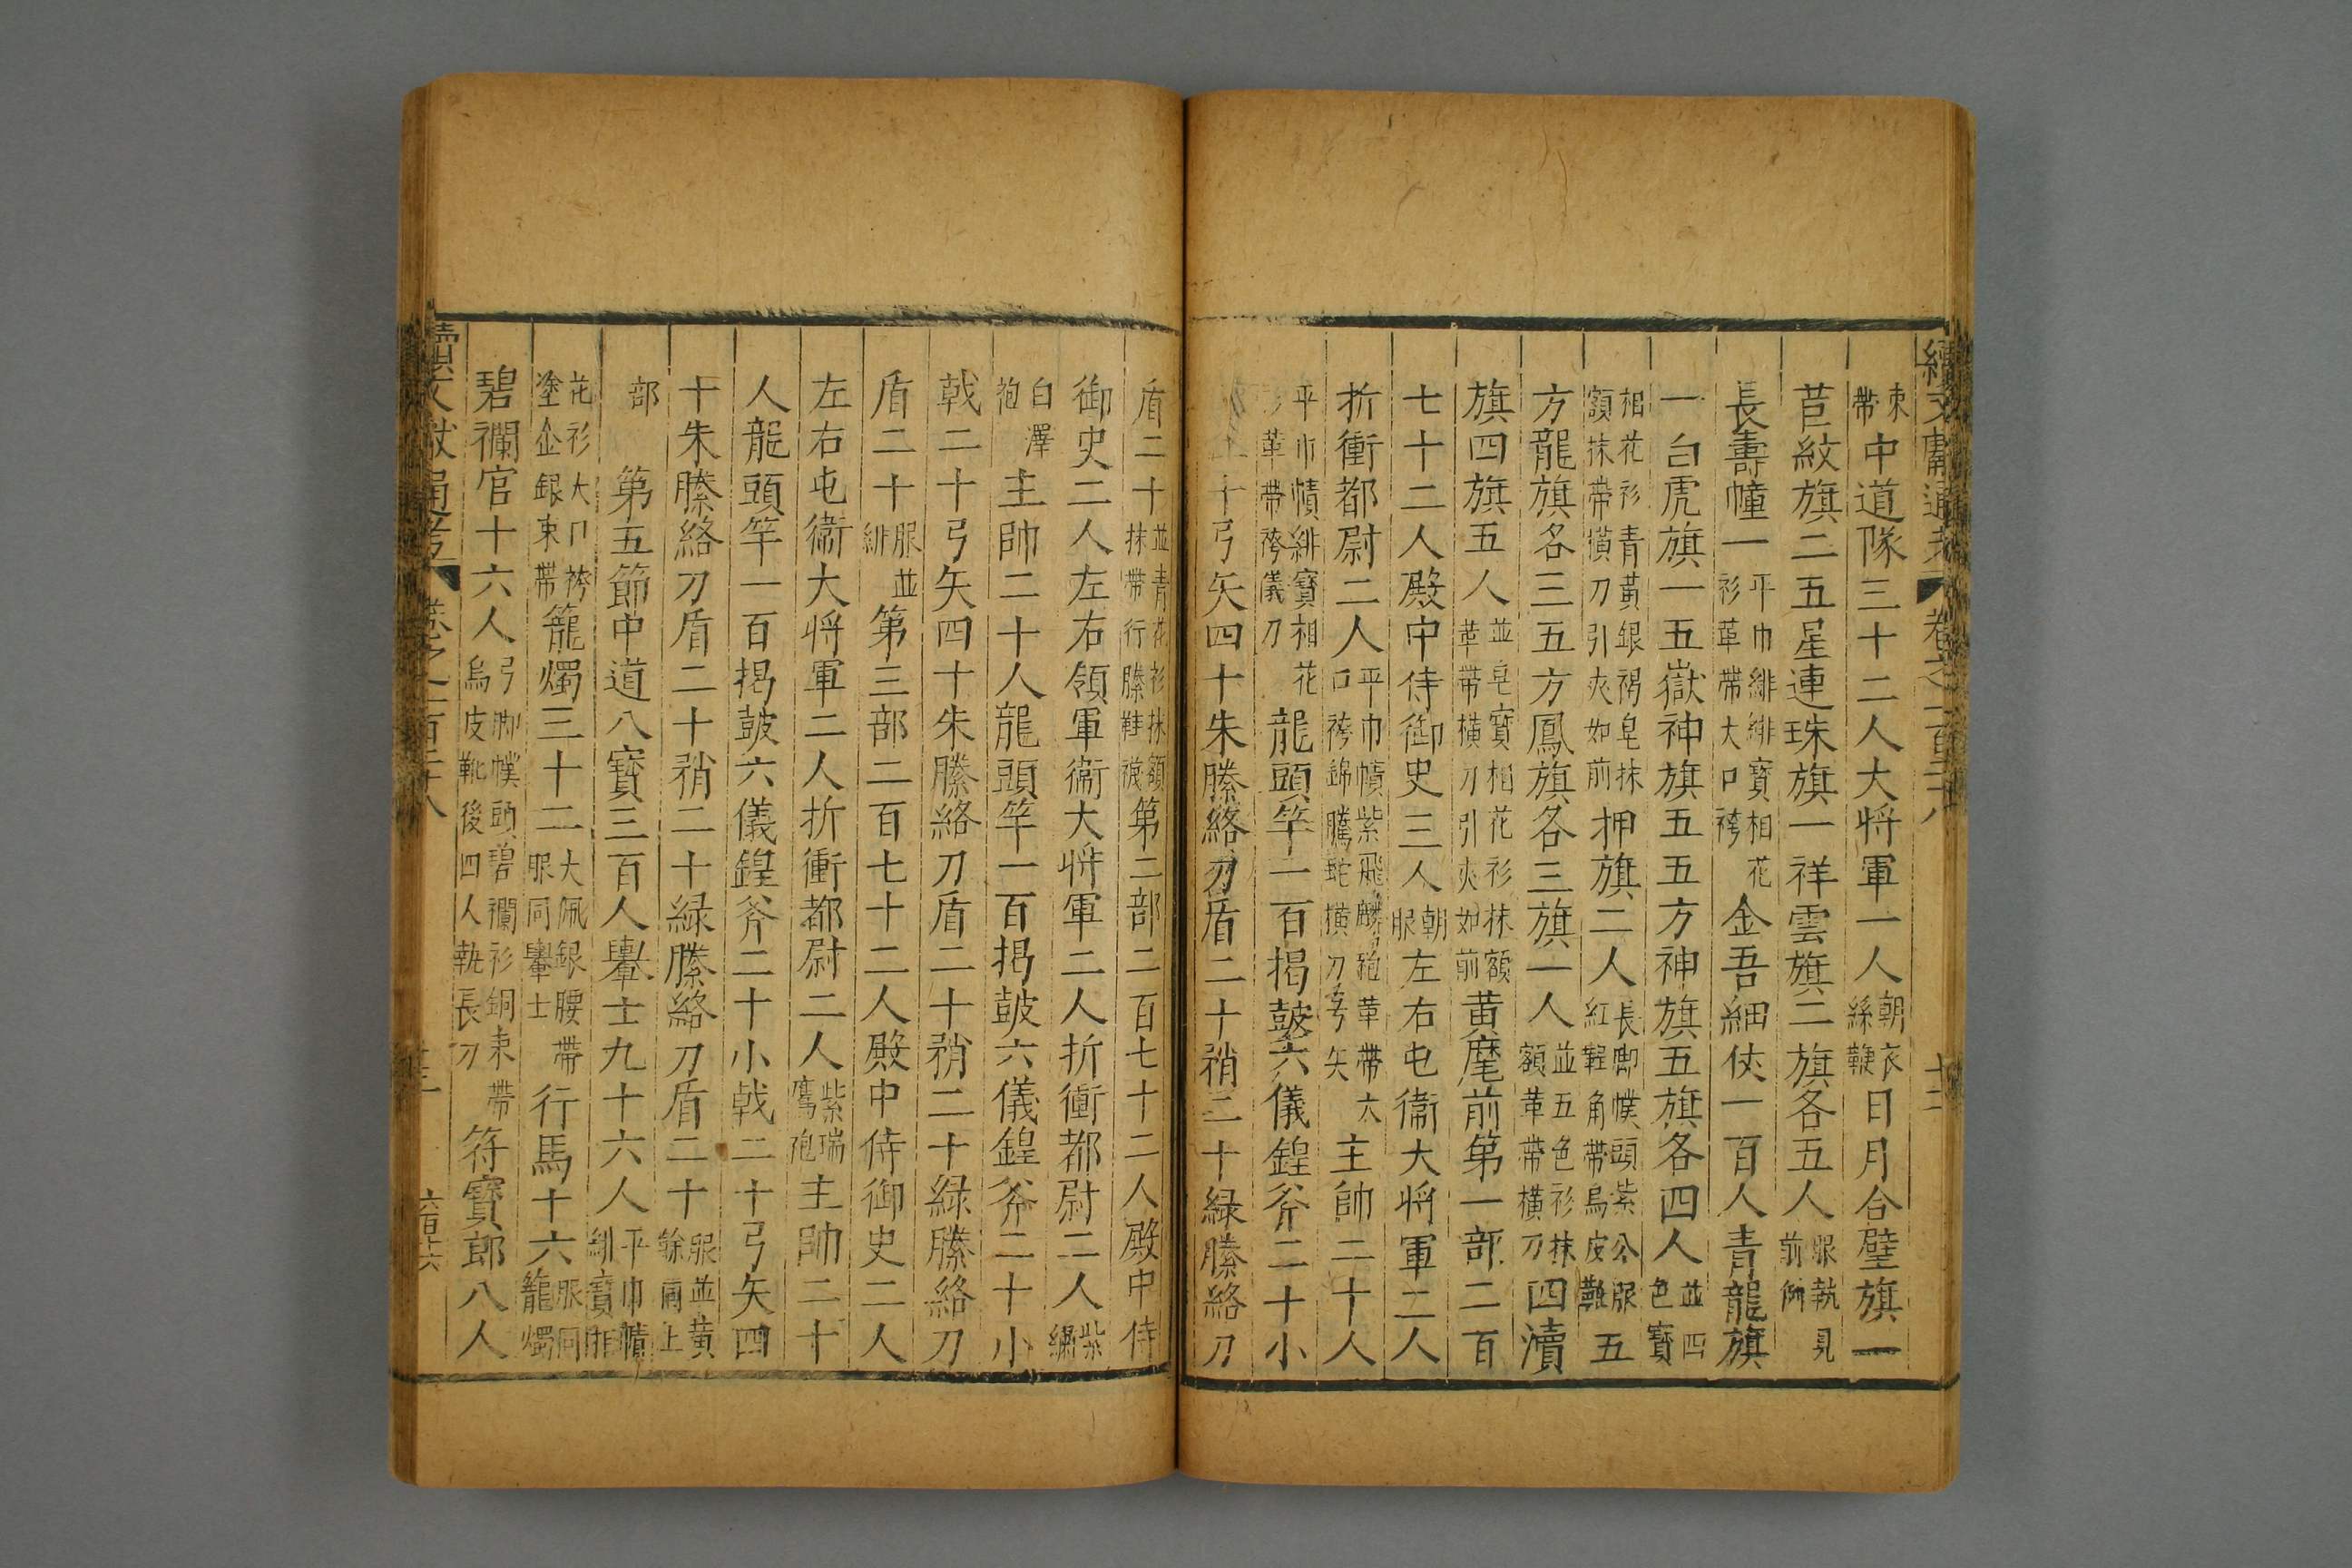 續文獻通考 卷之一百二十八 十二
束帶中道隊三十二人大將軍一人朝衣絲鞭日月合璧旗一
苣紋旗二五星連珠旗一祥雲旗二旗各五人服執見前例
長壽幢一平巾緋緋寶相花衫革帶大口袴金吾細仗一百人青龍旗
一白虎旗一五嶽神旗五五方神旗五旗各四人並四色寶
相花衫青黃銀褐皂抹額抹帶橫刀引夾如前押旗二人長脚幞頭紫公服紅鞓角帶烏皮鞾五
方龍旗各三五方鳳旗各三旗一人並五色衫抹額革帶橫刀四瀆
旗四旗五人並皂寶相花衫抹額革帶橫刀引夾如前黃麾前第一部二百
七十二人殿中侍御史三人朝服左右屯衞大將軍二人
折衝都尉二人平巾幘紫飛麟袍革帶大口袴錦騰蛇橫刀弓矢主帥二十人
平巾幘緋寶相花衫革帶袴儀刀龍頭竿一百揭鼓六儀鍠斧二十小
十弓矢四十朱縢絡刀盾二十矟二十緑縢絡刀
盾二十並青花衫抹額抹帶行縢鞋襪第二部二百七十二人殿中侍
御史二人左右領軍衞大將軍二人折衝都尉二人紫繡
白澤袍主帥二十人龍頭竿一百揭鼓六儀鍠斧二十小
戟二十弓矢四十朱縢絡刀盾二十矟二十緑縢絡刀
盾二十服並緋第三部二百七十二人殿中侍御史二人
左右屯衞大將軍二人折衝都尉二人紫瑞鷹袍主帥二十
人龍頭竿一百揭鼓六儀鍠斧二十小戟二十弓矢四
十朱縢絡刀盾二十矟二十緑縢絡刀盾二十服並黃餘同上
部第五節中道八寶三百人轝士九十六人平巾幘緋寶相
花衫大口袴塗金銀束帶籠燭三十二大佩銀腰帶服同轝士行馬十六服同籠燭
碧襴官十六人弓脚幞頭碧襴衫銅束帶烏皮靴後四人執長刀符寶郎八人
續文獻通考 卷之一百二十八 六百六